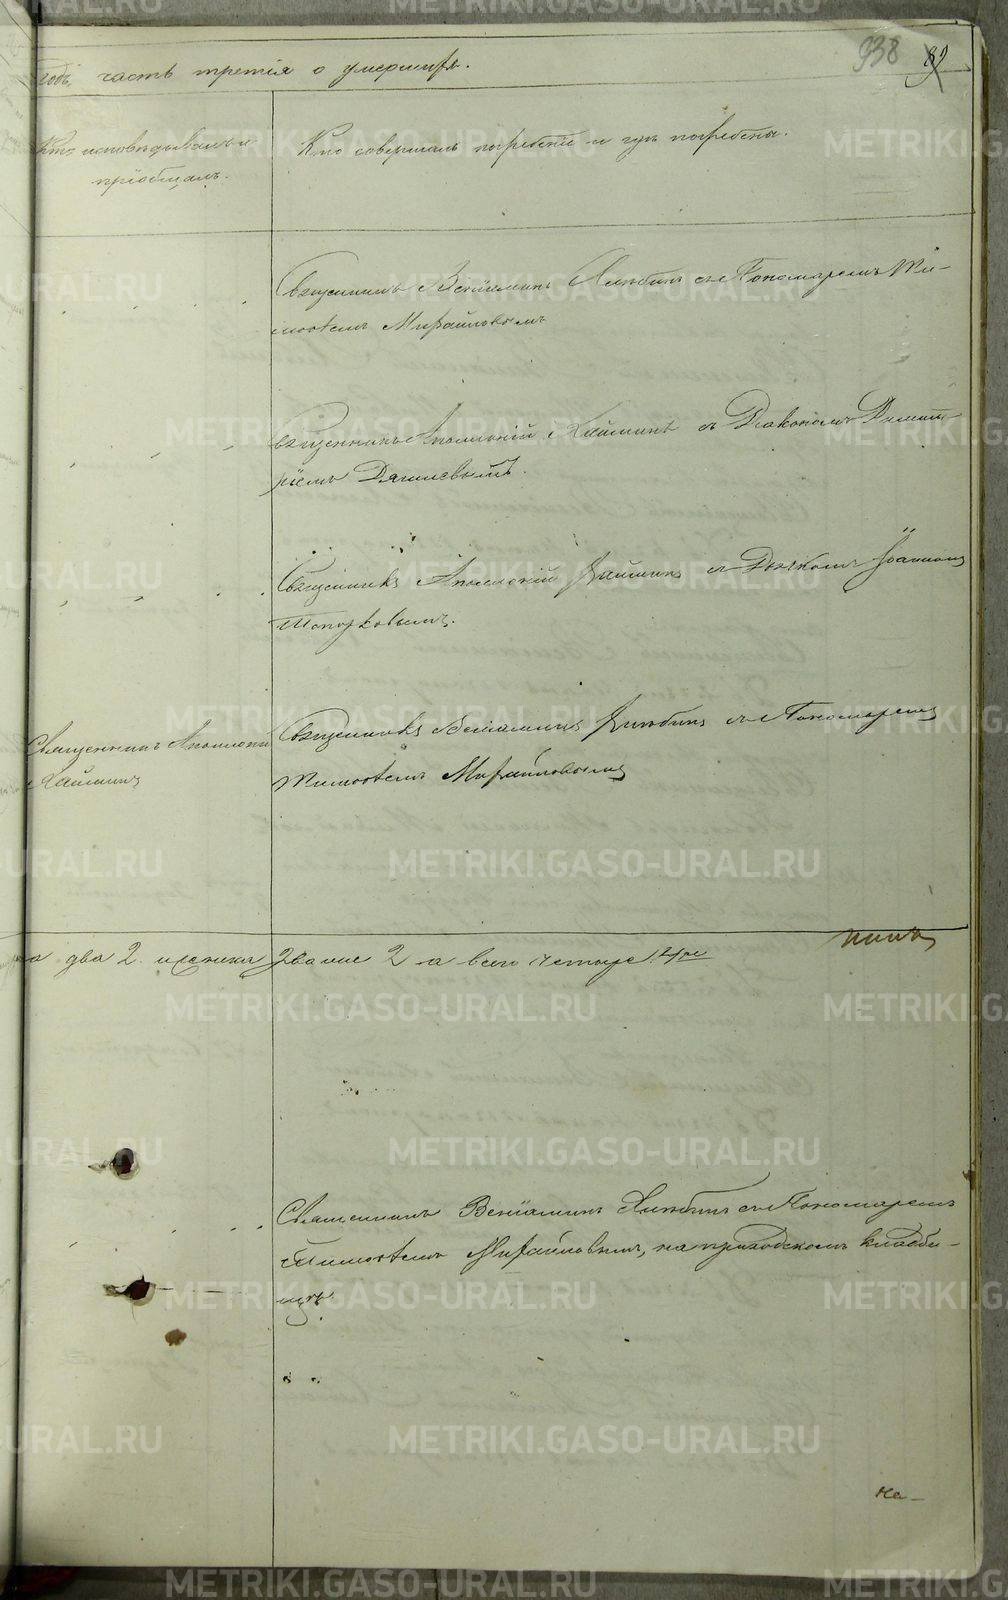 938 89
годъ, часть третія о умершихъ.
Кто исповѣдывалъ и
пріобщалъ.
Кто совершалъ погребеніе и гдѣ погребены.
Священникъ Веніаминъ с Пономаремъ Ти-
моѳеемъ Михайловымъ
Священникъ Аполлоній Хайминъ съ Діакономъ Димит-
ріемъ Дягилевымъ.
Священникъ Аполлоній Хайминъ съ Дьячкомъ Іоанномъ
Топорковымъ.
Священникъ Аполлоній
Хайминъ
Священникъ Веніаминъ съ Пономаремъ
Тимоѳеемъ Михайловымъ
а два 2. и женска двоие 2 а всего четыре 4ре
Священникъ Веніаминъ съ Пономаремъ
Тимоѳеемъ Михайловымъ, на приходскомъ кладби-
щѣ.
На-
METRIKI.GASO-URAL.RU